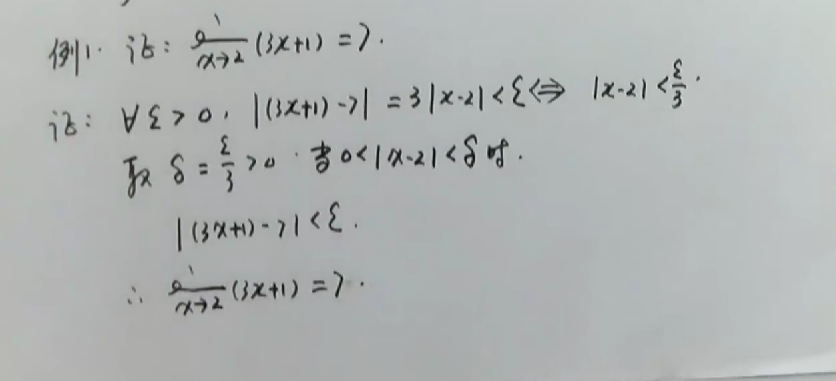 例1. 证: lim x→2 (3x+1) = 7.
证: ∀ε>0, |(3x+1)-7| = 3|x-2|<ε ⇔ |x-2|<ε/3.
取 δ = ε/3 >0. 当0<|x-2|<δ时.
|(3x+1)-7|<ε.
∴ lim x→2 (3x+1) = 7.